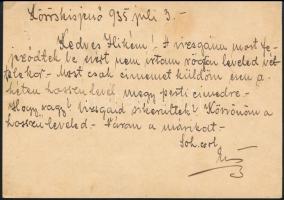 Köröskisjenő 935 júli 3.-
Kedves Hikém! A vizsgáim most fe-
jeződtek be ezért nem írtam rögön leveled vé-
telekor.- Most csak címemet küldöm ezen a
héten hosszu levél megy pesti címedre.-
Hogy vagy? Vizsgáid sikerültek? Köszönöm a
hosszu leveled.- Várom a
Sok csók